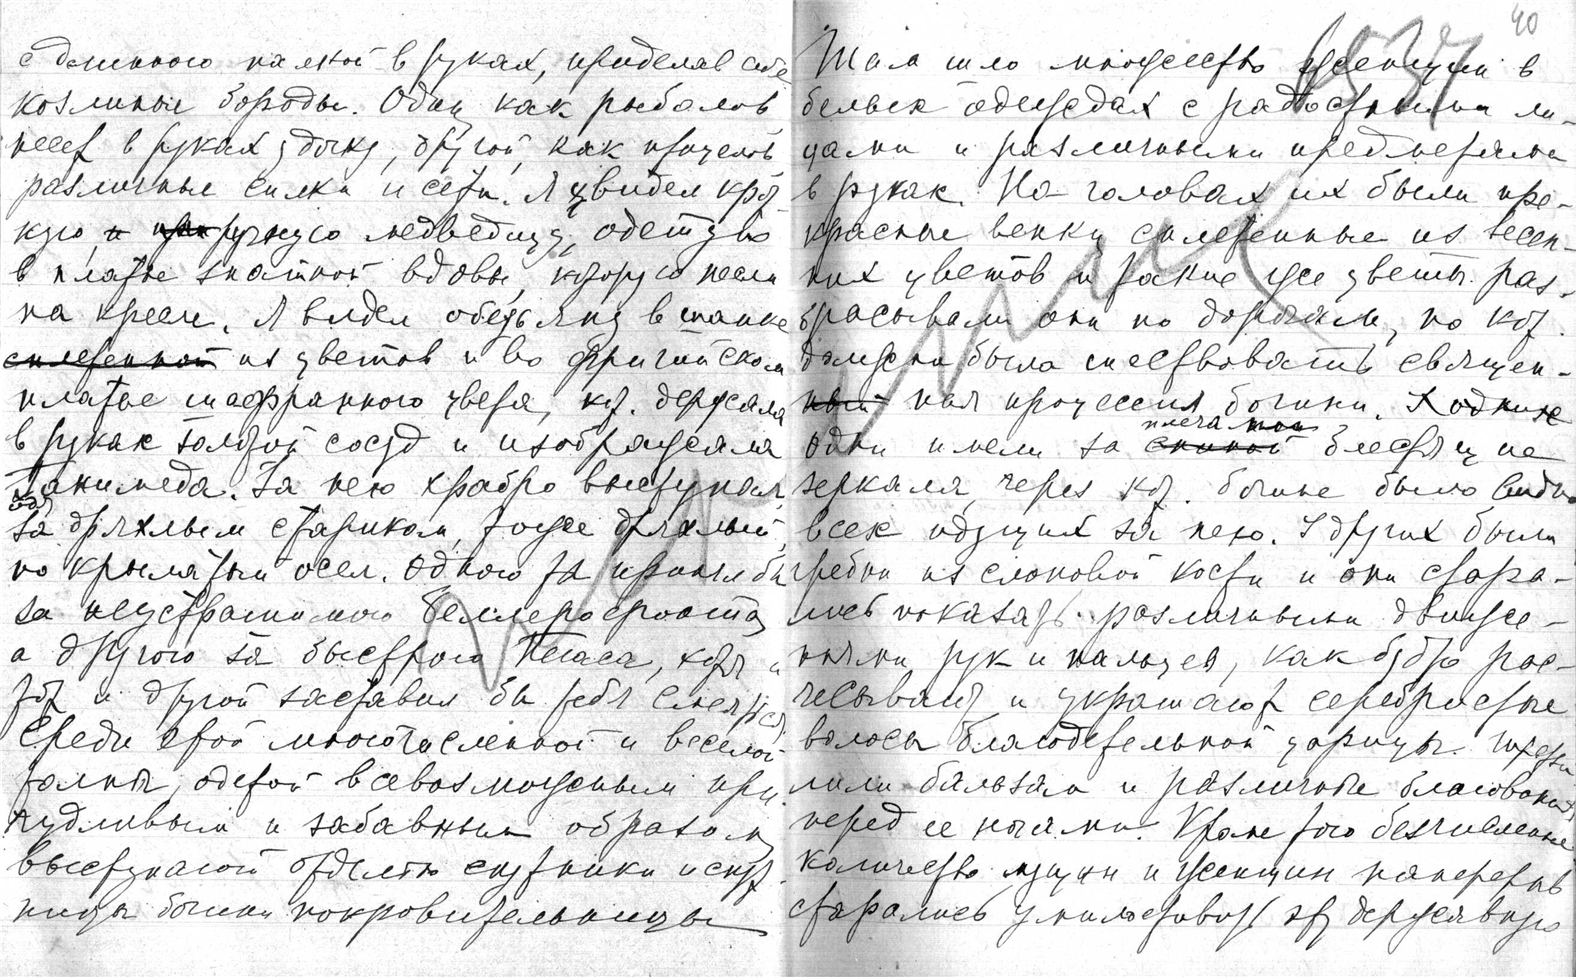 с длинною палкой в руках, приделав себе
козлиные бороды. Один как рыболов
несет в руках удочку, другой, как птицелов
различные силки и сети. Я увидел крот-
кую, и ручную медведицу, одетую
в платье знатной вдовы, которую несли
на кресле. Я видел обезьяну в шапке
сплетенной из цветов и во фригийском
платье шафранного цвета, кот. держала
в руках золотой сосуд и изображала
Ганимеда. За нею храбро выступал,
за дряхлым стариком, тоже дряхлый,
но крылатый осел. Одного за приняли бы
за неустрашимого Беллерофонта,
а другого за быстрого Пегаса, хотя и
тот и другой заставил бы тебя смеяться.
Среди этой многочисленной и веселой
толпы, одетой всевозможным при-
чудливым и забавным образом,
выступают отдельно спутники и спут-
ницы богини покровительницы
40
1537
Шло множество женщин в
белых одеждах с радостными ли-
цами и различными предметами
в руках. На головах их были пре-
красные венки сплетенные из весен-
них цветов и такие же цветы раз-
брасывали они по дорогам, по кот.
должна была шествовать священ-
ный ная процессия богини.
плечами
Одни имели за спиной блестящие
зеркала, через кот. богине было видно
всех идущих за нею. У других были
гребни из слоновой кости и они стара-
лись показать различными движе-
ниями рук и пальцев, как будто рас-
чесывают и украшают серебристые
волосы благодетельной царицы. Третьи
лили бальзам и различные благовония
перед ее ногами. Кроме того безчисленное
количество мущин и женщин наперерыв
старались умилостивить эту державную